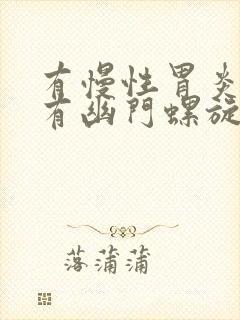 有慢性胃炎
有幽門螺旋
落蒲蒲